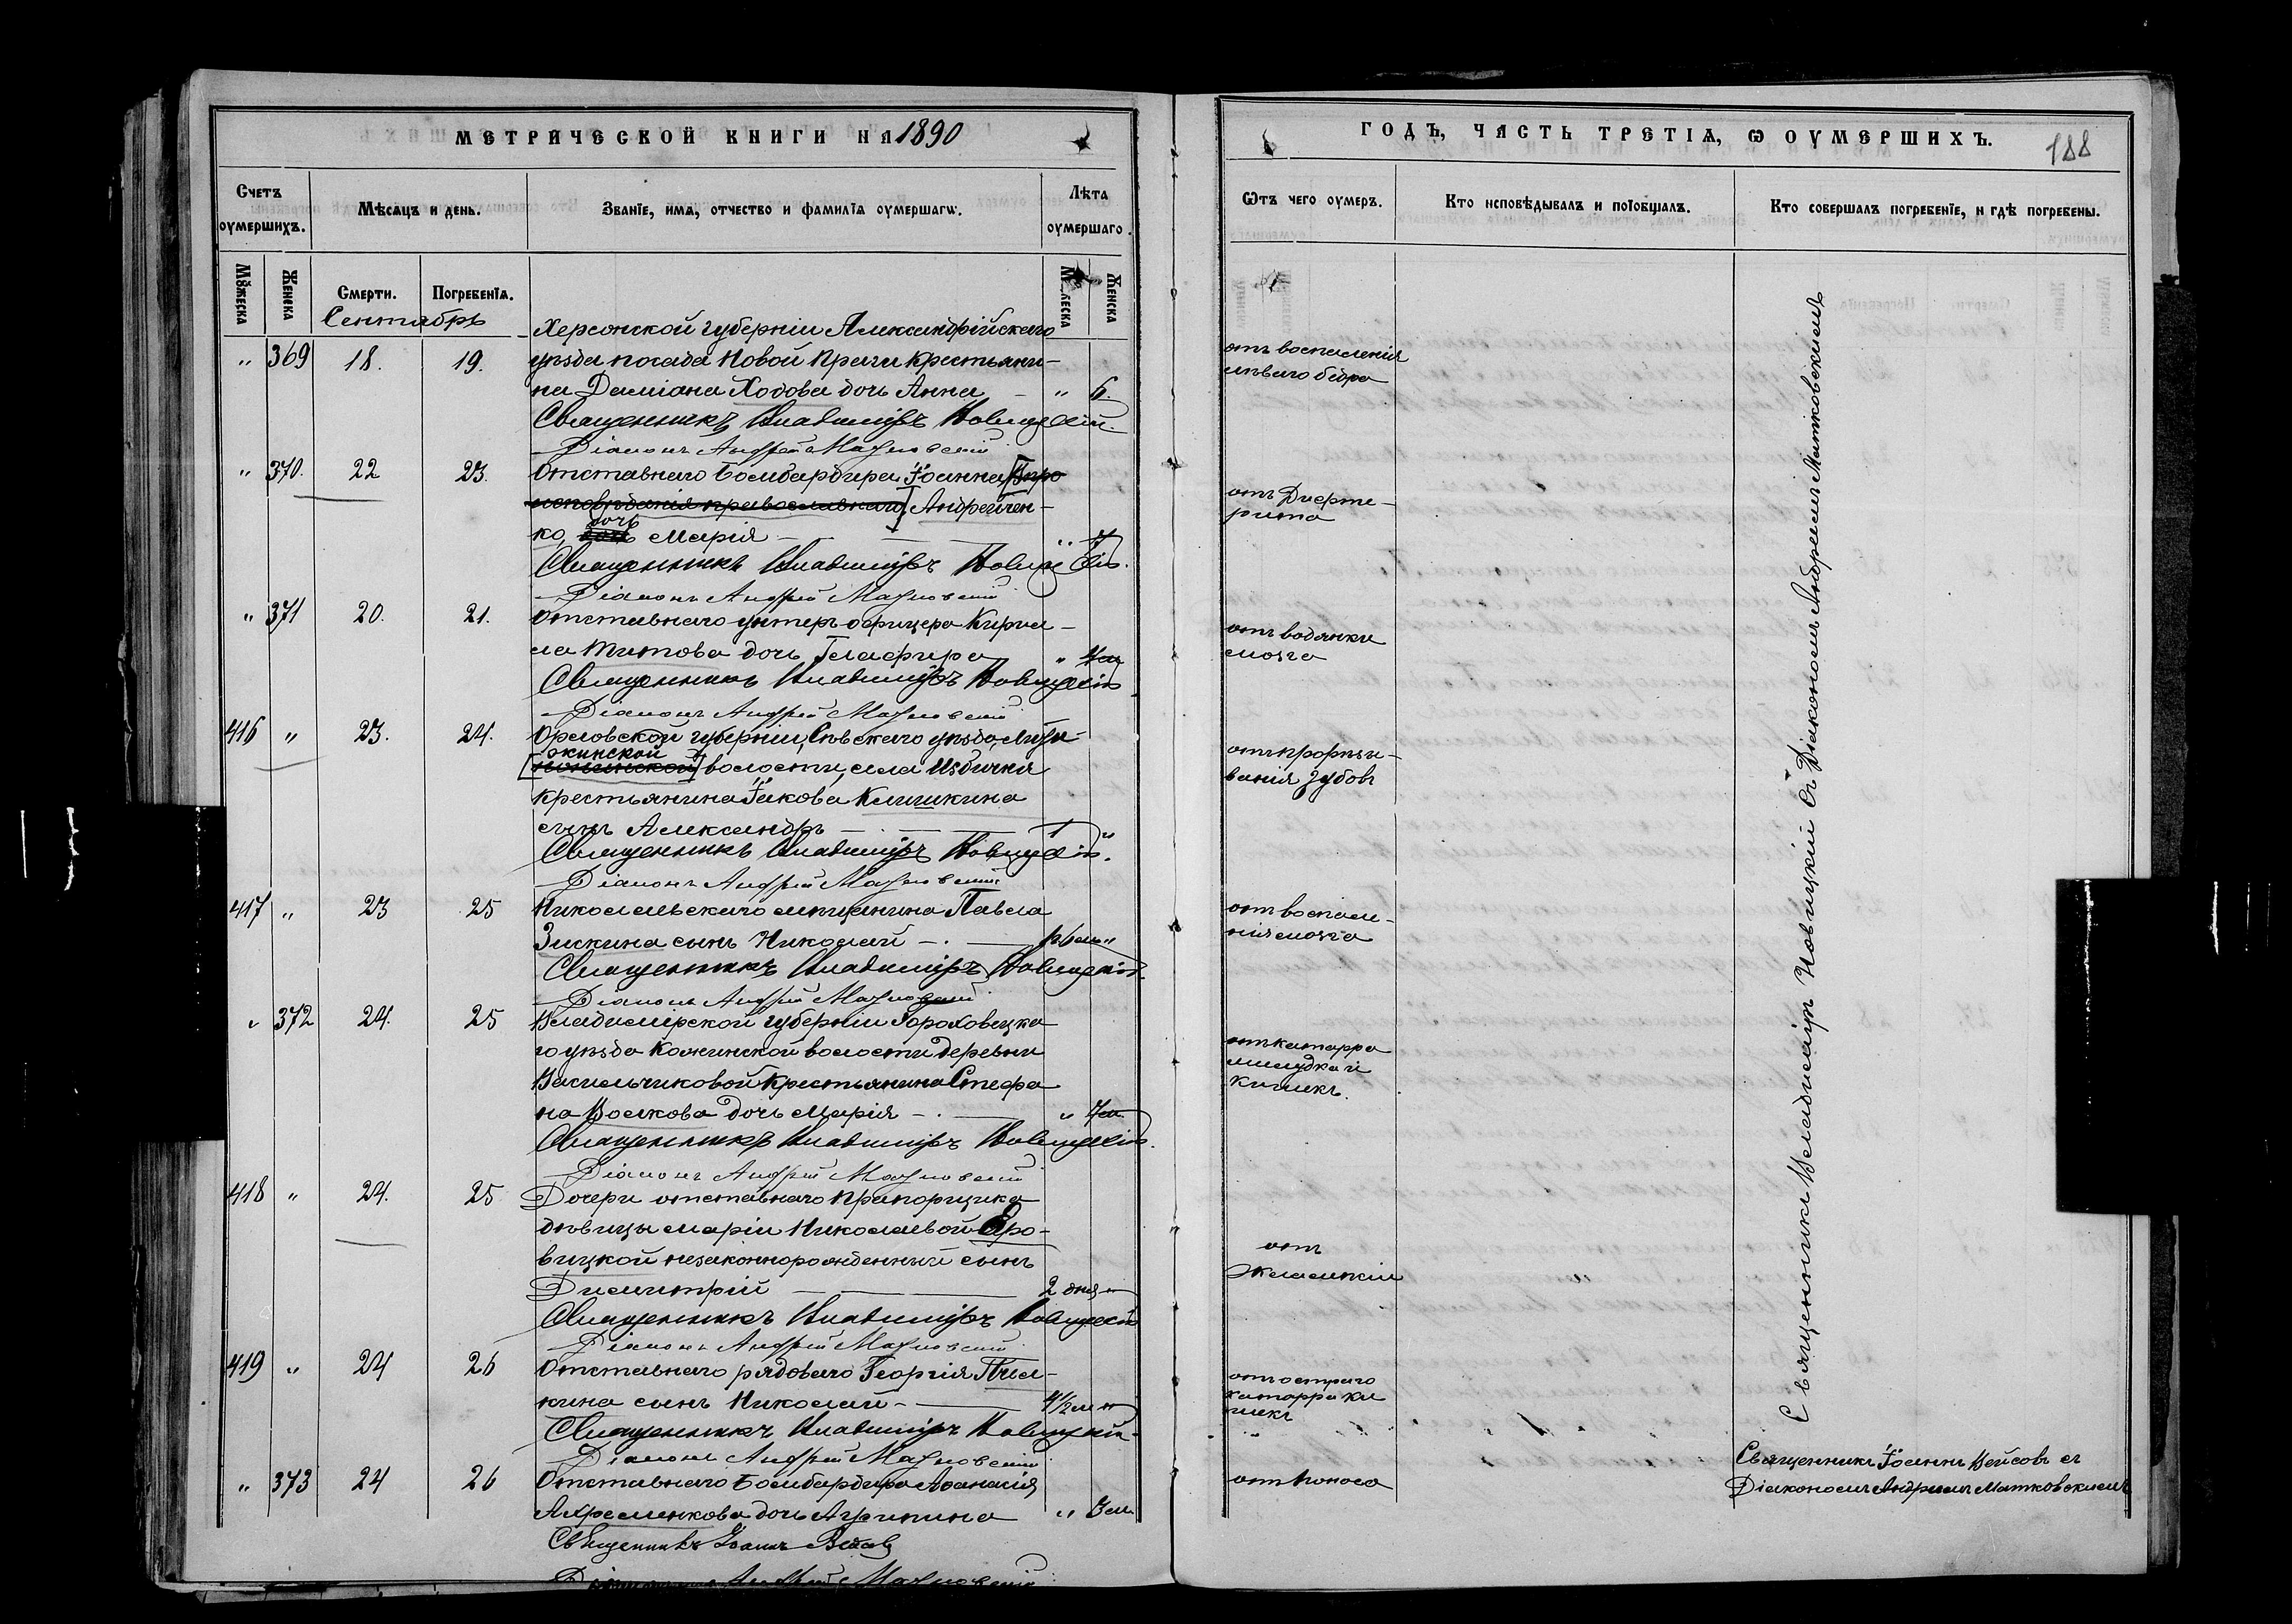 МЕТРИЧЕСКОЙ КНИГИ НА 1890
Счетъ оумершихъ.
Мѣсяцъ и день.
Званїе, имя, отчество и фамилїя оумершагѡ.
Лѣта оумершаго.
Мꙋжеска
Женска
Смерти.
Погребенїя.
Мꙋжеска
Женска
Сентябрь
Херсонской губерніи Александрійскаго
„ 369 18. 19. уѣзда посада Новой Праги крестьяни-
на Даміана Ходова дочь Анна – „ 6.
Священникъ Владиміръ Новицкій.
Діаконъ Андрей Матковскій
„ 370. 22 23. Отставнаго Бомбардира Іоанна
исповѣданія православнаго Андрейчен-
ко, дочь Марія –
Священникъ Владиміръ Новицкій.
Діаконъ Андрей Матковскій
„ 371 20. 21. Отставнаго унтеръ офицера Кирил-
ла Титова дочь Глафира „
Священникъ Владиміръ Новицкій
Діаконъ Андрей Матковскій
416 „ 23. 24. Орловской губерніи, Сѣвскаго уѣзда,
волости, села Избичня
крестьянина Іакова Клишкина
сынъ Александръ – 1 „
Священникъ Владиміръ Новицкій.
Діаконъ Андрей Матковскій
417 „ 23 25 Николаевскаго мѣщанина Павла
Зискина сынъ Николай –
Священникъ Владиміръ Новицкій.
Діаконъ Андрей Матковскій
„ 372 24. 25 Владимірской губерніи Гороховецка-
го уѣзда Кожинской волости деревни
Васильчиковой крестьянина Стефа-
на Волкова дочь Марія – „ 7 м.
Священникъ Владиміръ Новицкій.
Діаконъ Андрей Матковскій
418 „ 24. 25 Дочери отставнаго прапорщика
дѣвицы Маріи Николаевой Яро-
вицкой незаконнорожденный сынъ
Димитрій – 2 дня „
Священникъ Владиміръ Новицкій
Діаконъ Андрей Матковскій
419 „ 24 26 Отставнаго рядоваго Георгія Пчел-
кина сынъ Николай –
Священникъ Владиміръ Новицкій.
Діаконъ Андрей Матковскій
„ 373 24 26 Отставнаго Бомбардира Аѳанасія
Ахременкова дочь Агрипина „ 3 м.
Священникъ Іоаннъ Вейсовъ
Діаконъ Андрей Матковскій
ГОДЪ, ЧАСТЬ ТРЕТІЯ, Ѡ ОУМЕРШИХЪ.
188
Ѿъ чего оумеръ.
Кто исповѣдывалъ и поїобщалъ.
Кто совершалъ погребенїе, и гдѣ погребены.
отъ воспаленія
лѣваго бедра
отъ Дифте-
рита
отъ водянки
мозга
отъ прорѣзы-
ванія зубовъ
отъ воспале-
нія мозга
отъ катарра
желудка и
кишекъ.
отъ
отъ остраго
катарра ки-
шекъ
отъ поноса
Священникъ Владиміръ Новицкій съ Діакономъ Андреемъ Матковскимъ
Священникъ Іоаннъ Вейсовъ съ
Діакономъ Андреемъ Матковскимъ